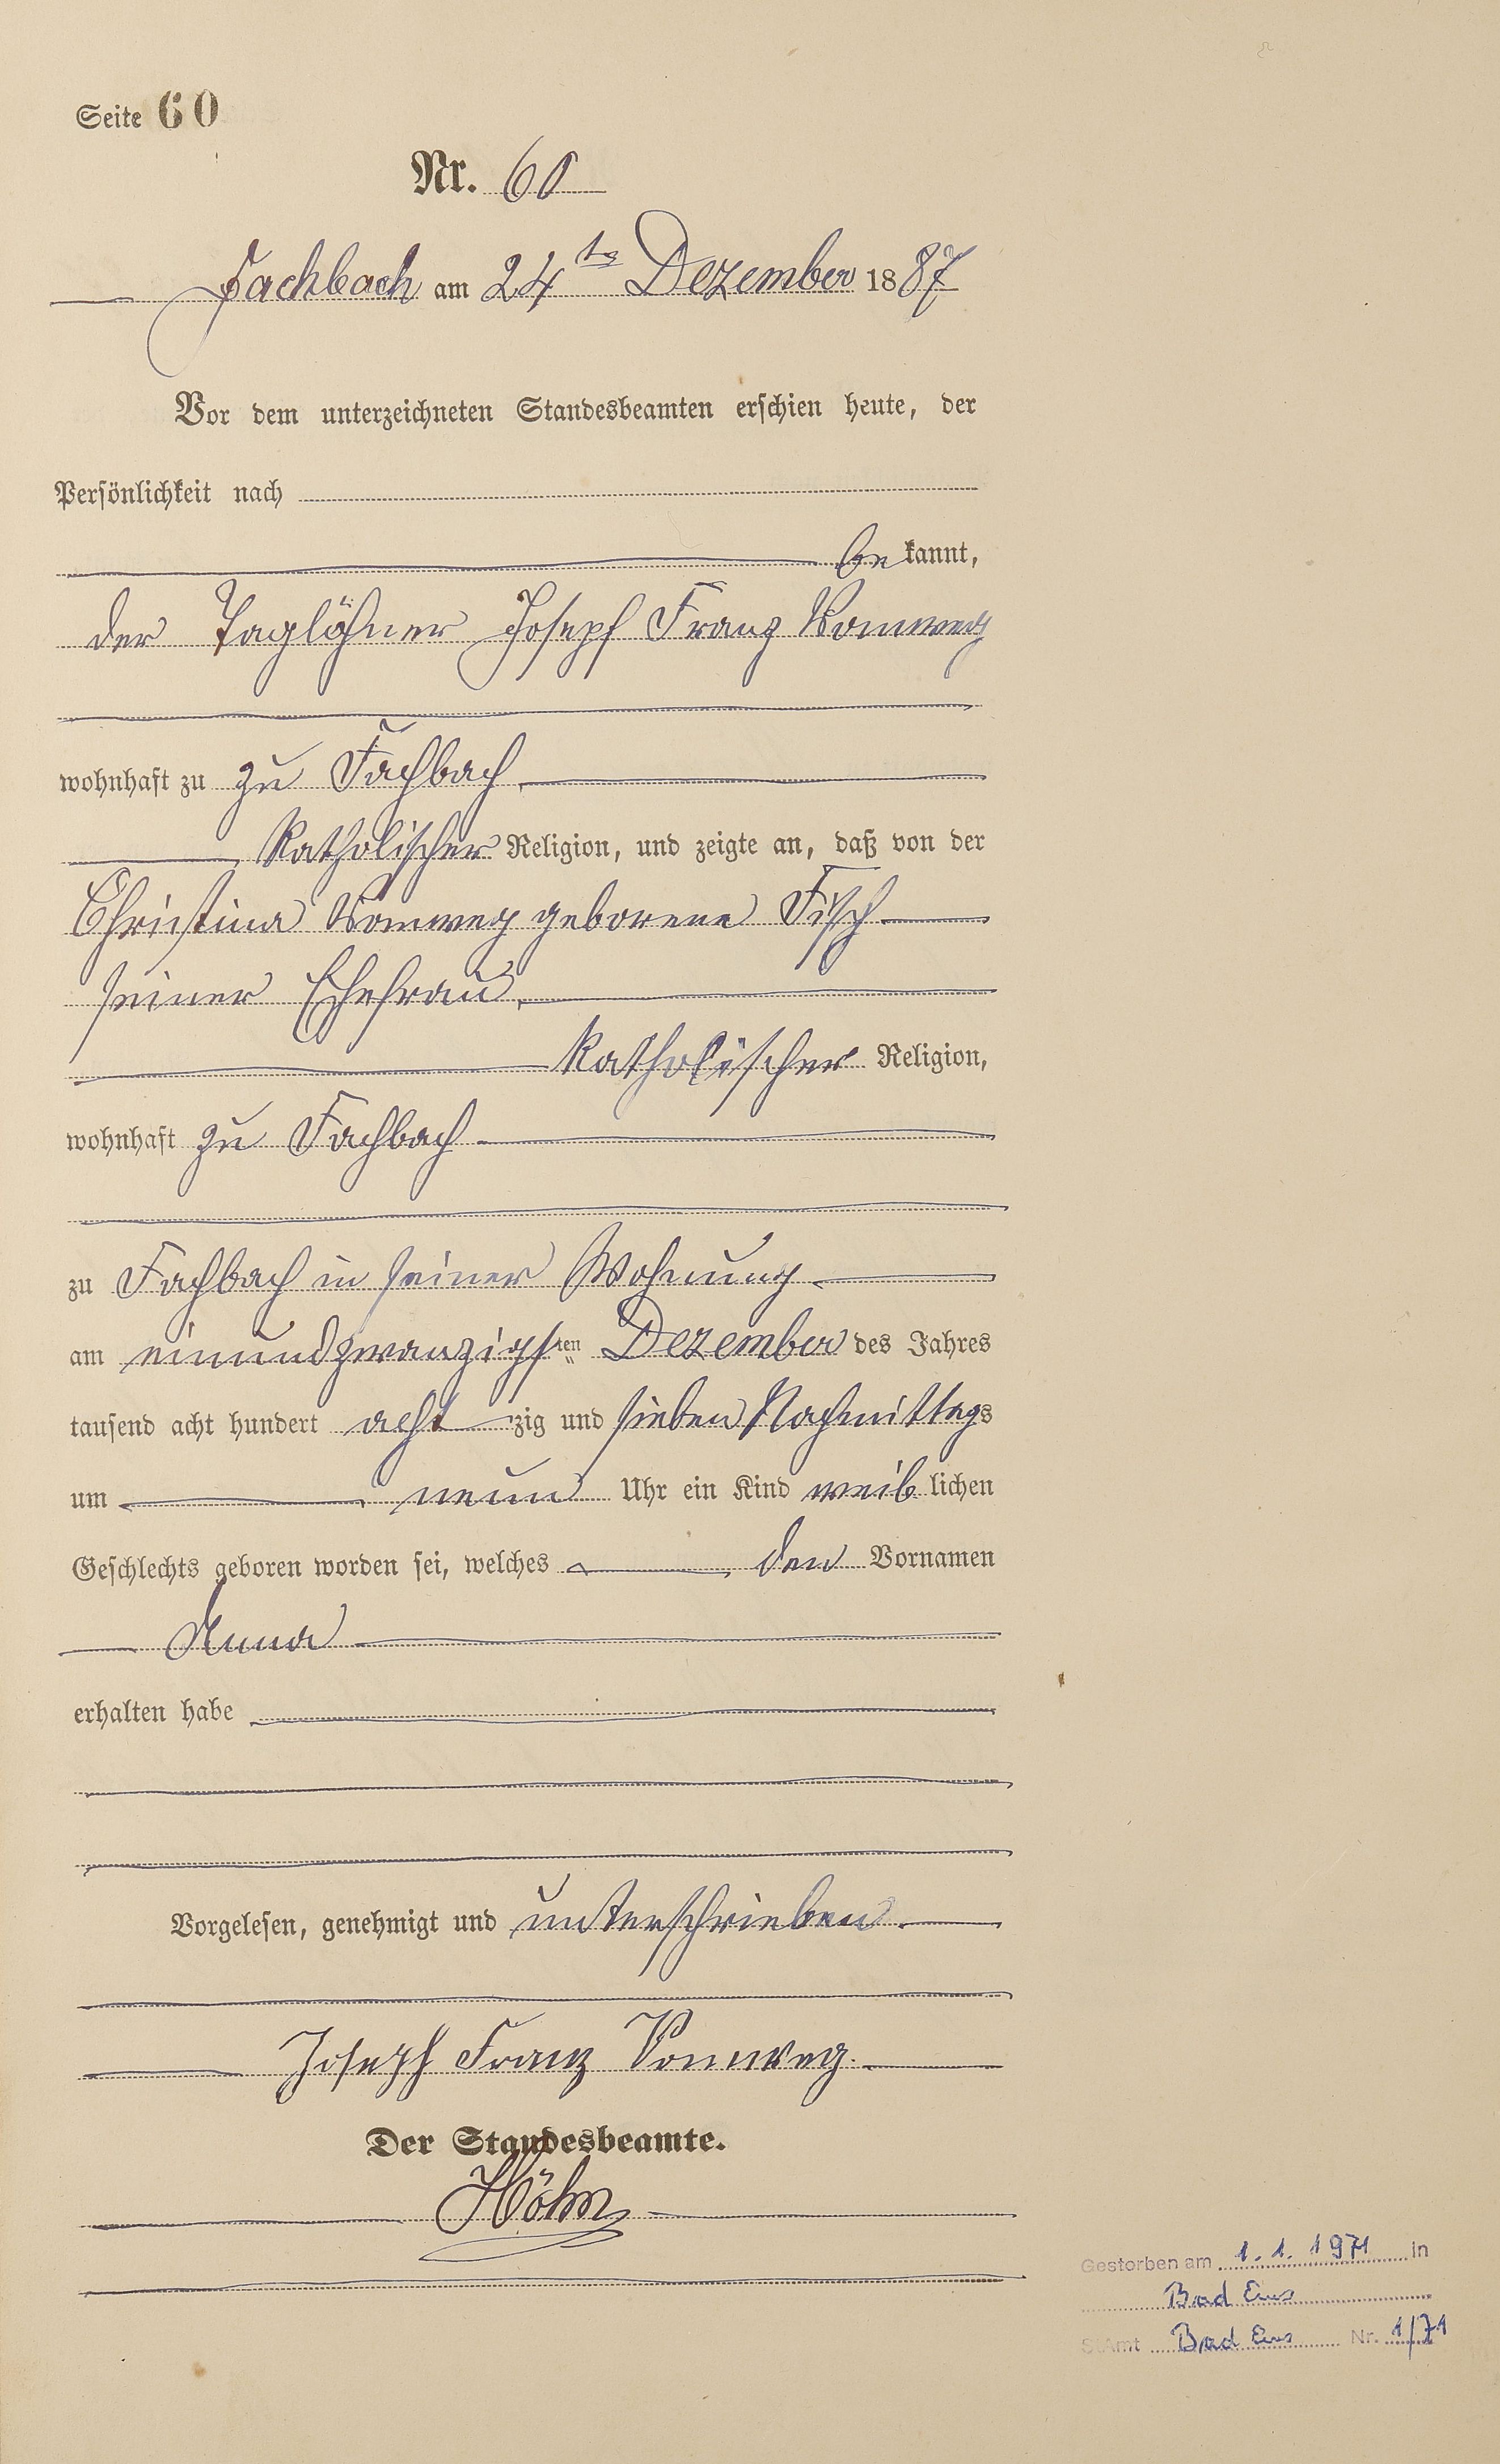 Seite 60
Nr. 60
Fachbach am 24ts Dezember 1887
Vor dem unterzeichneten Standesbeamten erschien heute, der
Persönlichkeit nach
bekannt,
der Taglöhner Joseph Franz Vomweg
wohnhaft zu zu Fachbach
Katholischer Religion, und zeigte an, daß von der
Christina Vomweg geborene Fisch
seiner Ehefrau,
Katholischer Religion,
wohnhaft zu Fachbach
zu Fachbach in seiner Wohnung
am einundzwanzigsten Dezember des Jahres
tausend acht hundert achtzig und sieben Nachmittags
um neun Uhr ein Kind weiblichen
Geschlechts geboren worden sei, welches den Vornamen
Anna
erhalten habe
Vorgelesen, genehmigt und unterschrieben.
Joseph Franz Vomweg.
Der Standesbeamte.
Höhn
Gestorben am 1.1.1971 in
Bad Ems
StAmt Bad Ems Nr. 1/71